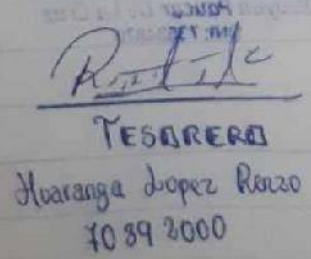 TESORERO
Huaranga Lopez Renzo
70892000